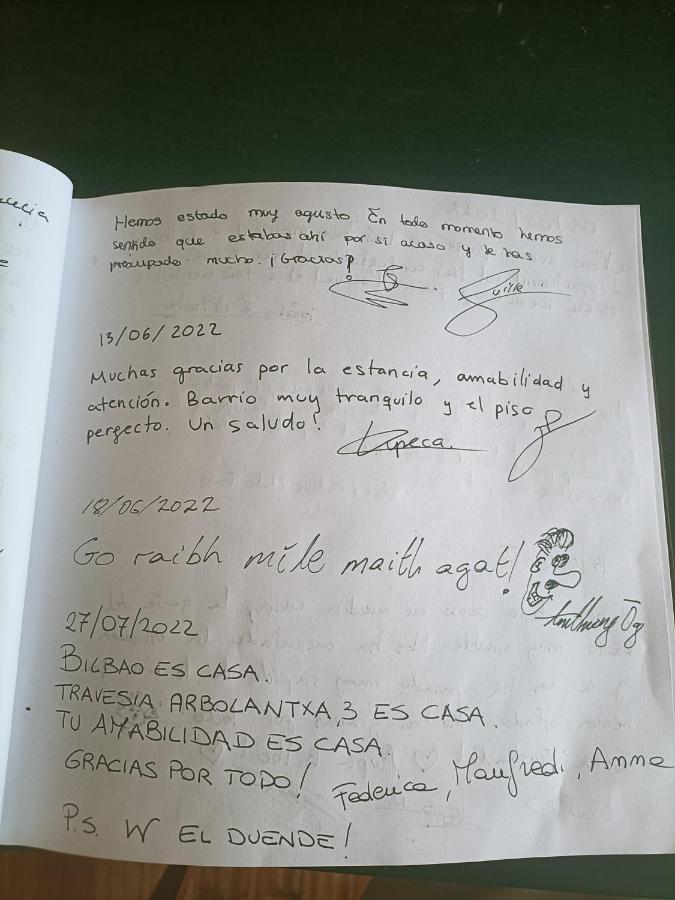 Hemos estado muy agusto. En todo momento hemos
sentido que estabas ahí por si acaso y te has
preocupado mucho. ¡Gracias!
Guille
13/06/2022
Muchas gracias por la estancia, amabilidad y
atención. Barrio muy tranquilo y el piso
pergecto. Un saludo!
18/06/2022
Go raibh míle maith agat!
Óg
27/07/2022
BILBAO ES CASA.
TRAVESIA ARBOLANTXA 3 ES CASA.
TU AMABILIDAD ES CASA.
GRACIAS POR TODO! Federica, Manfredi, Anna
P.S. W EL DUENDE!